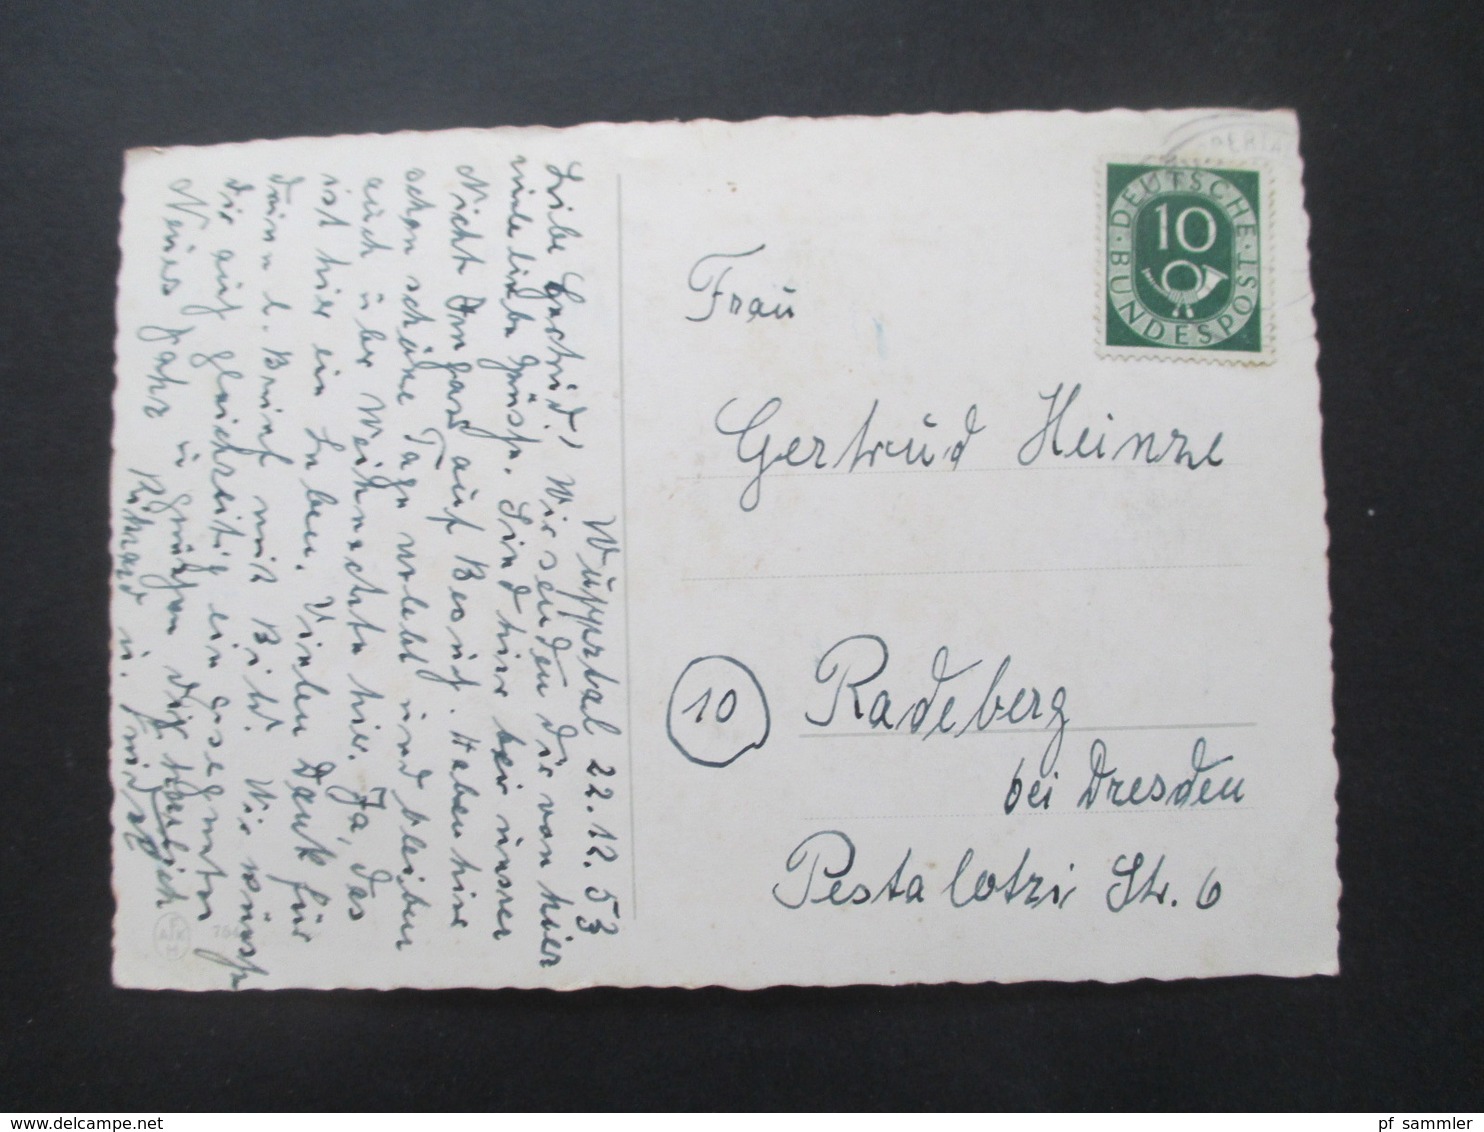 Wuppertal 22.12.53
Liebe Gertrud! Wir senden dir von hier
viele liebe Grüße. Sind hier bei unserer
Nicht auf Besuch. Haben hier
schon schöne Tage verlebt und bleiben
auch über Weihnachten hier. Ja, das
ist hier ein Leben. Vielen Dank für
dein l. Brief mit Bild. Wir wünsch
dir auch gleichzeitig ein gesegnetes
Neues Jahr u grüßen dich herzlich
Richard u. Frida
Frau
Gertrud Heinze
10 Radeberg
bei Dresden
Pestalotzi Str. 6
DEUTSCHE
BUNDESPOST
10
pf_sammler
delcampe.net